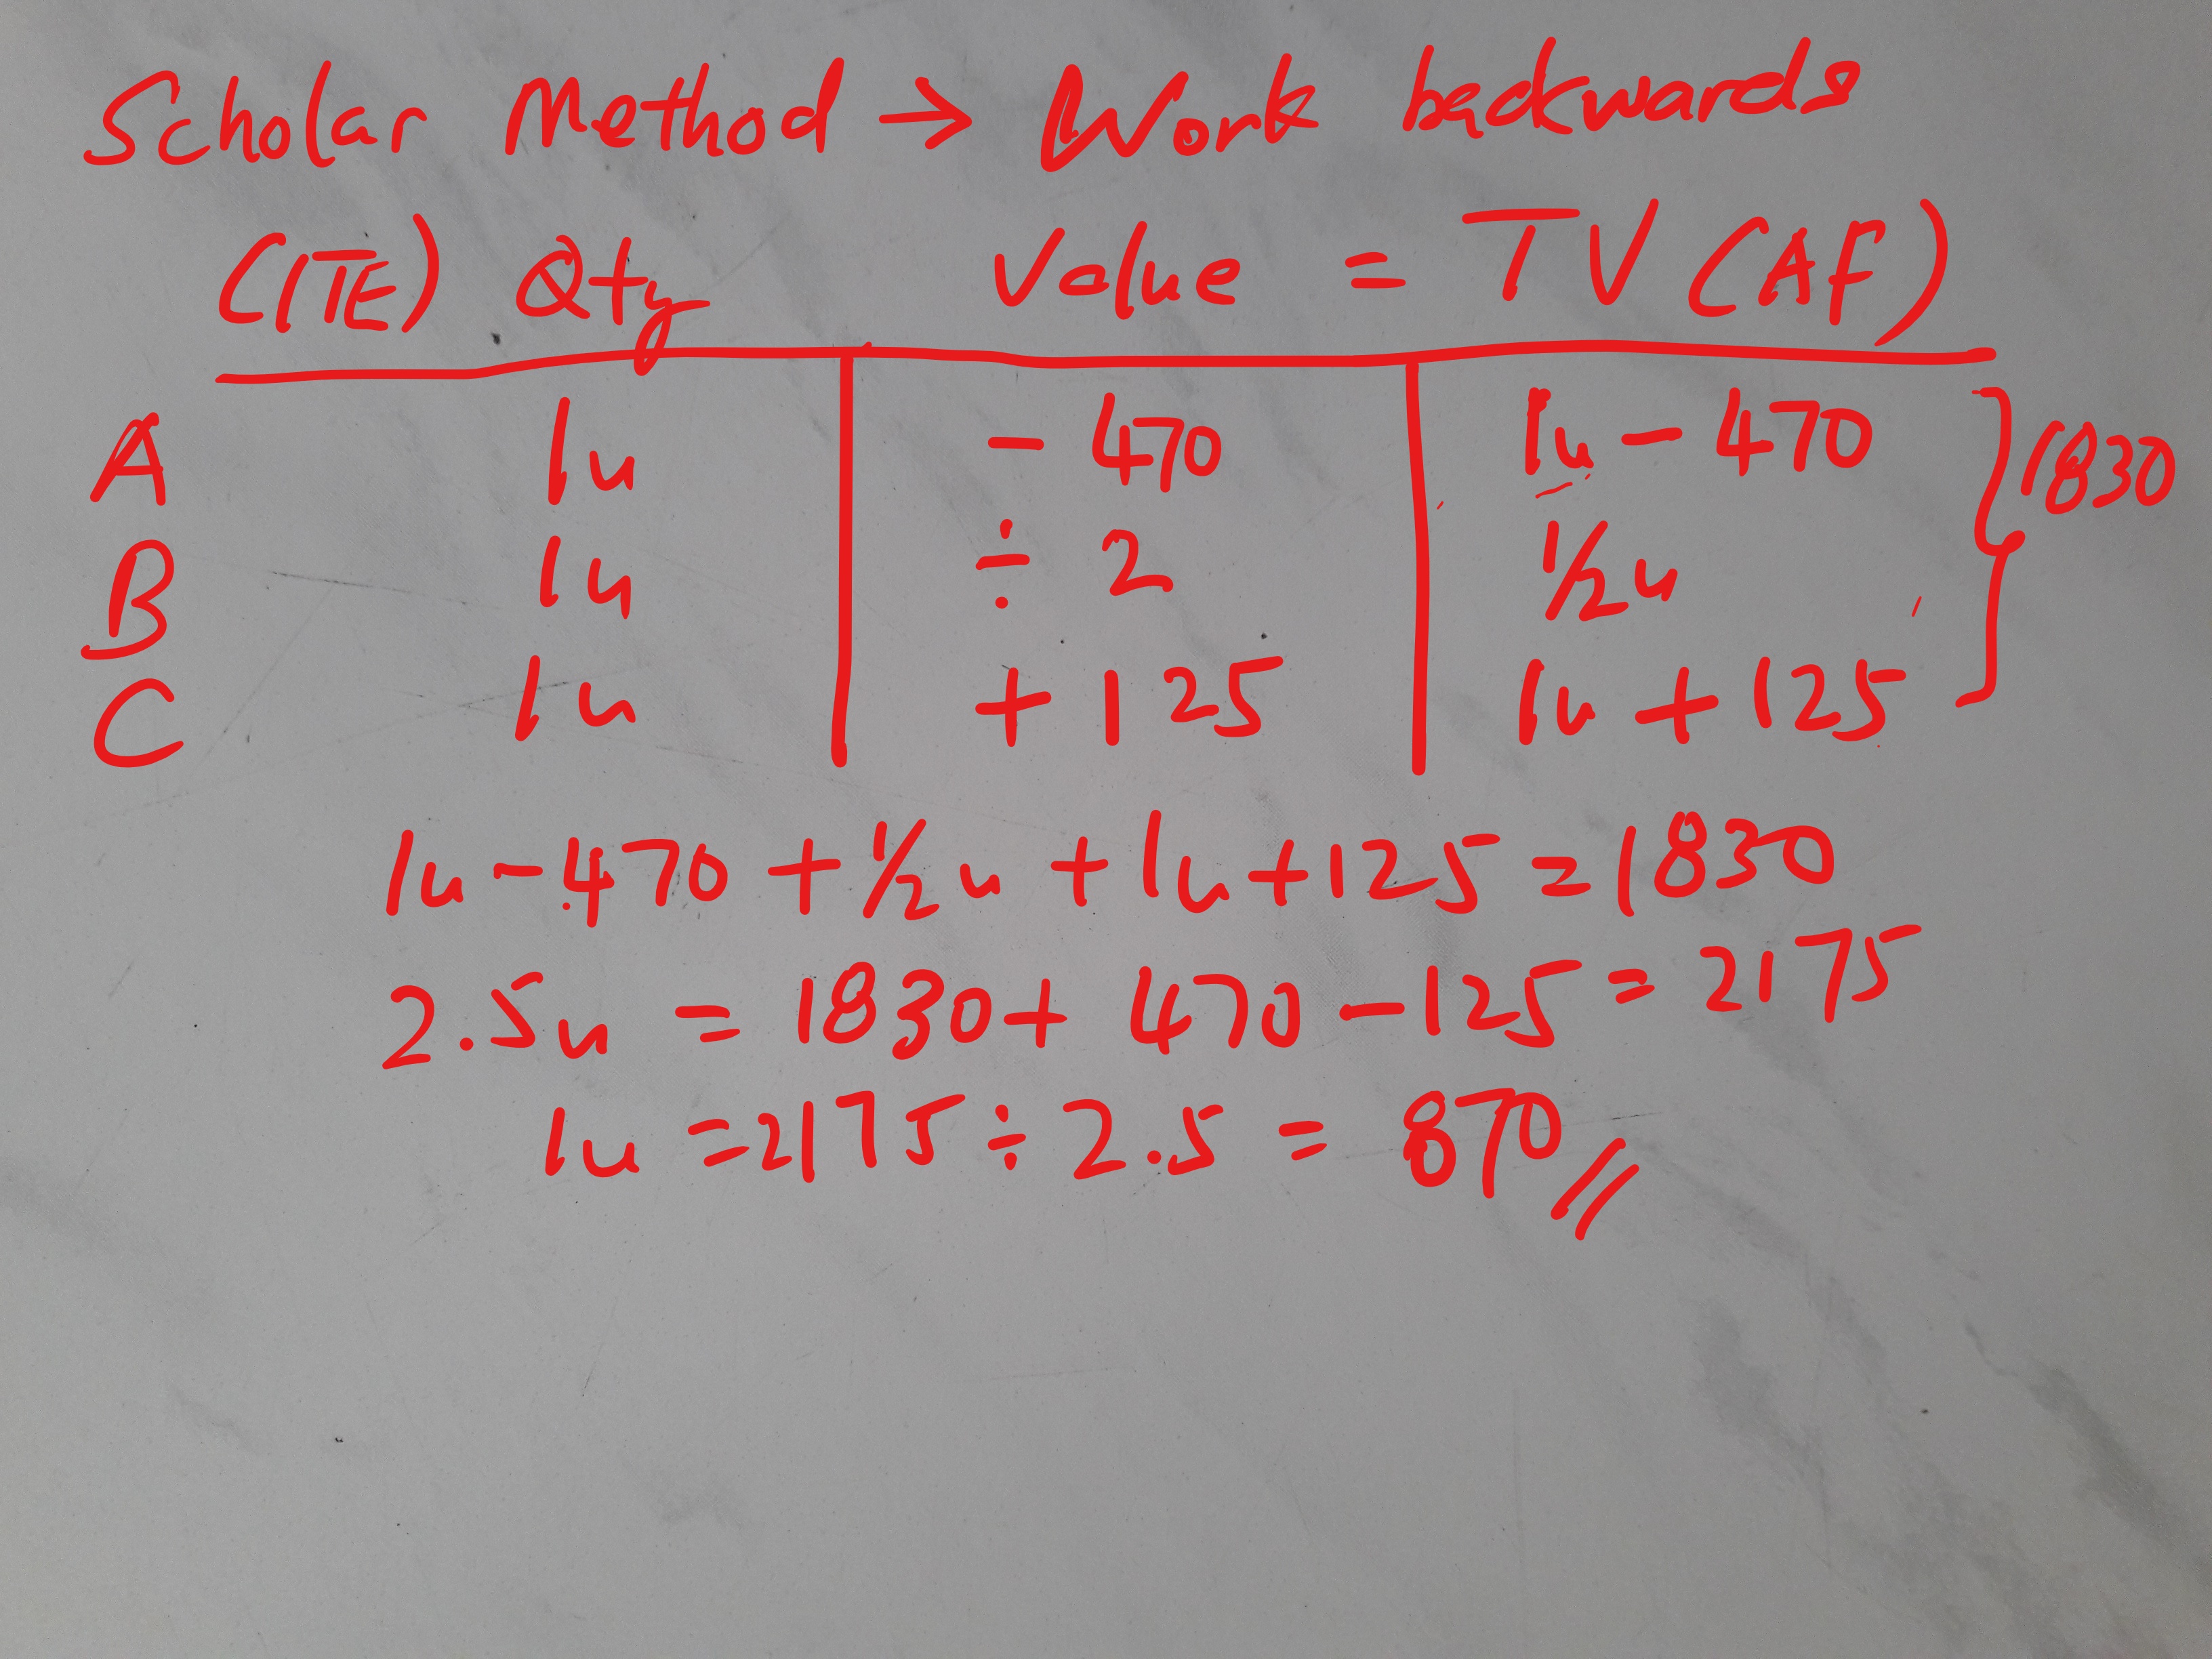 Scholar Method → Work backwards
(ITE) Qty Value = TV (AF)
A 1u - 470 1u - 470 } 1830
B 1u ÷ 2 1/2u
C 1u + 125 1u + 125
1u - 470 + 1/2 u + 1u + 125 = 1830
2.5u = 1830 + 470 - 125 = 2175
1u = 2175 ÷ 2.5 = 870 //